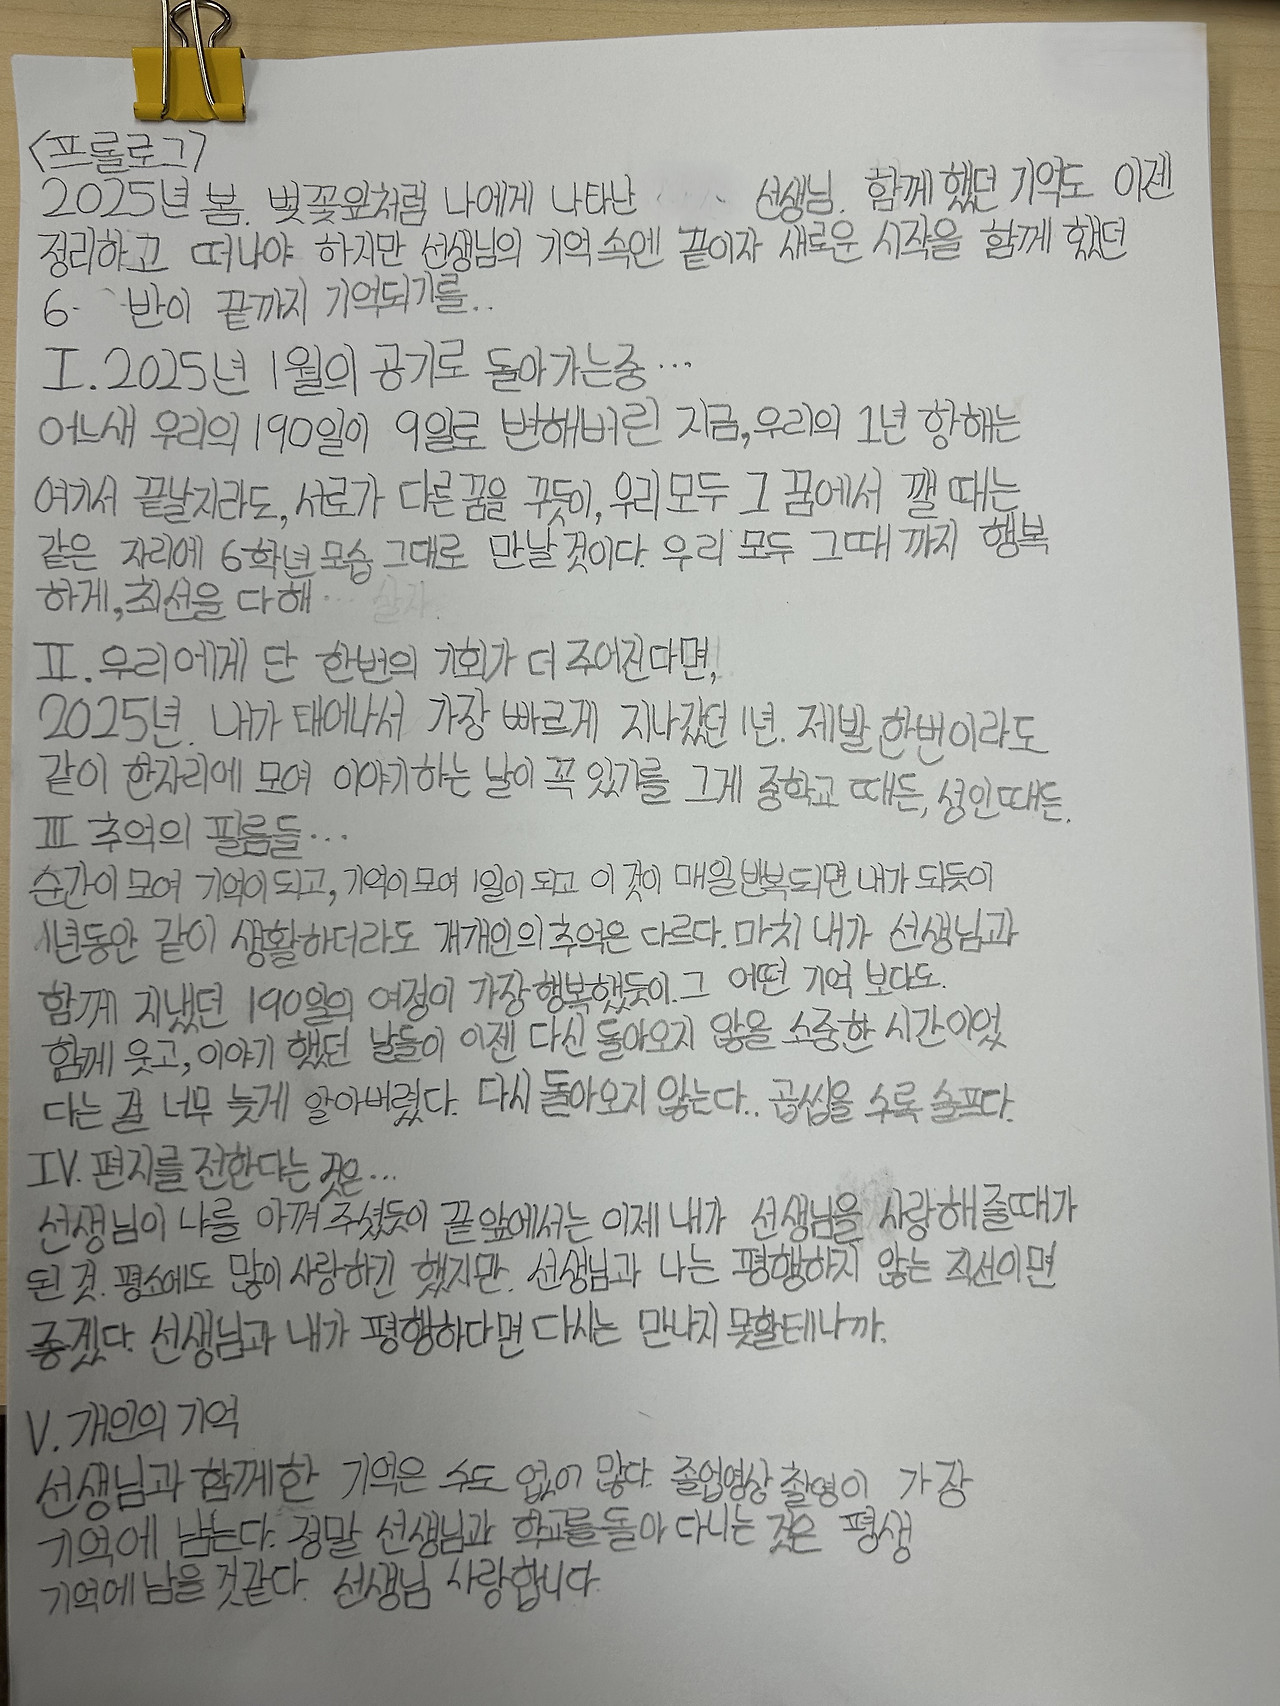 <프롤로그>
2025년 봄. 벚꽃잎처럼 나에게 나타난 선생님. 함께했던 기억도 이젠
정리하고 떠나야 하지만 선생님의 기억 속엔 끝이자 새로운 시작을 함께 했던
6- 반이 끝까지 기억되기를..
I. 2025년 1월의 공기로 돌아가는중…
어느새 우리의 190일이 9일로 변해버린 지금, 우리의 1년 항해는
여기서 끝날지라도, 서로가 다른 꿈을 꾸듯이, 우리 모두 그 꿈에서 깰 때는
같은 자리에 6학년 모습 그대로 만날 것이다. 우리 모두 그때 까지 행복
하게, 최선을 다해… 살자.
II. 우리에게 단 한번의 기회가 더 주어진다면,
2025년. 내가 태어나서 가장 빠르게 지나갔던 1년. 제발 한번이라도
같이 한자리에 모여 이야기하는 날이 꼭 있기를 그게 중학교 때든, 성인때든.
III 추억의 필름들…
순간이 모여 기억이 되고, 기억이 모여 1일이 되고 이 것이 매일 반복되면 내가 되듯이
1년동안 같이 생활하더라도 개개인의 추억은 다르다. 마치 내가 선생님과
함께 지냈던 190일의 여정이 가장 행복했듯이. 그 어떤 기억 보다도.
함께 웃고, 이야기 했던 날들이 이젠 다신 돌아오지 않을 소중한 시간이었
다는 걸 너무 늦게 알아버렸다. 다시 돌아오지 않는다.. 곱씹을 수록 슬프다.
IV. 편지를 전한다는 것은…
선생님이 나를 아껴 주셨듯이 끝 앞에서는 이제 내가 선생님을 사랑해 줄때가
된 것. 평소에도 많이 사랑하긴 했지만. 선생님과 나는 평행하지 않는 직선이면
좋겠다. 선생님과 내가 평행하다면 다시는 만나지 못할테니까.
V. 개인의 기억
선생님과 함께한 기억은 수도 없이 많다. 졸업영상 촬영이 가장
기억에 남는다. 정말 선생님과 학교를 돌아 다니는 것은 평생
기억에 남을 것같다. 선생님 사랑합니다.